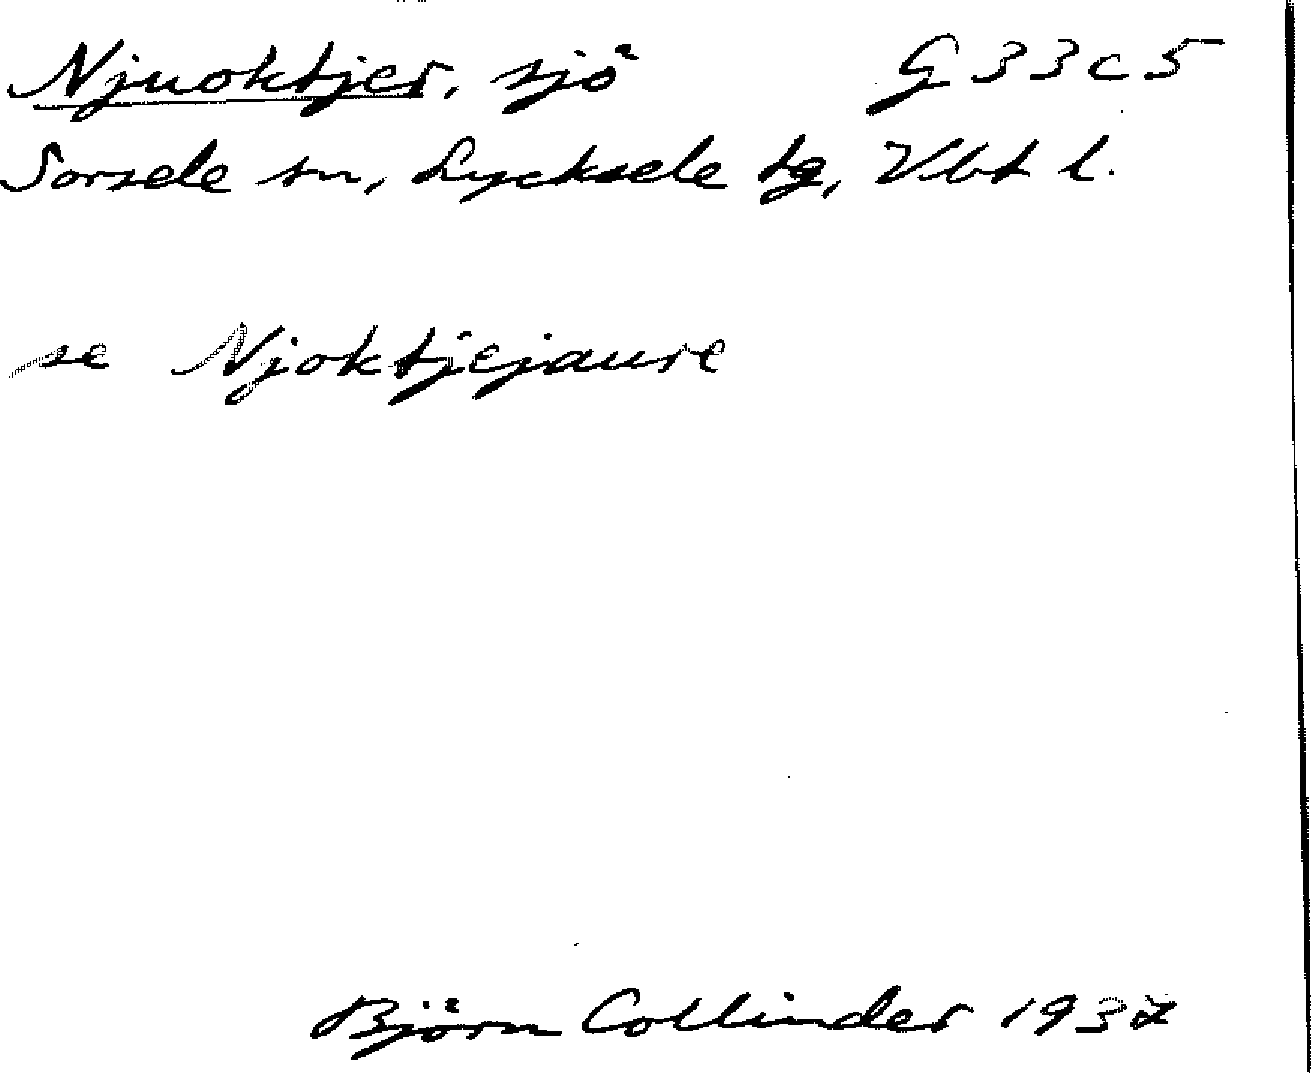 Njuoktjer, sjö G 33 c 5
Sorsele sn, Lycksele tg, Vbt l.
se Njoktjejaure
Björn Collinder 1937